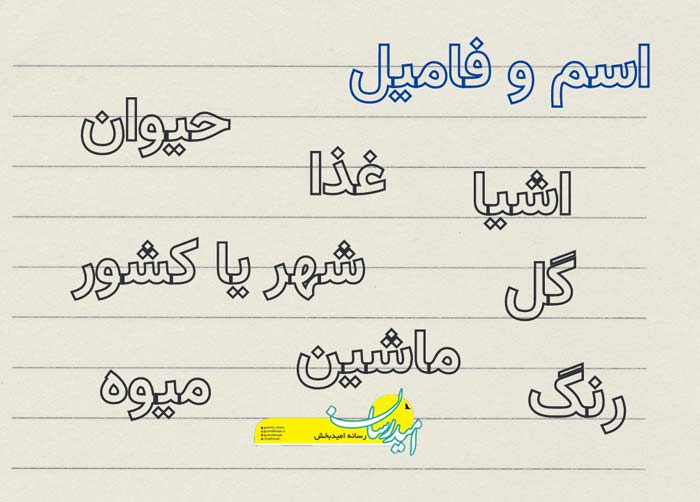 اسم و فامیل
حیوان
غذا
اشیا
شهر یا کشور
گل
ماشین
میوه
رنگ
امیدرسان
رسانه امیدبخش